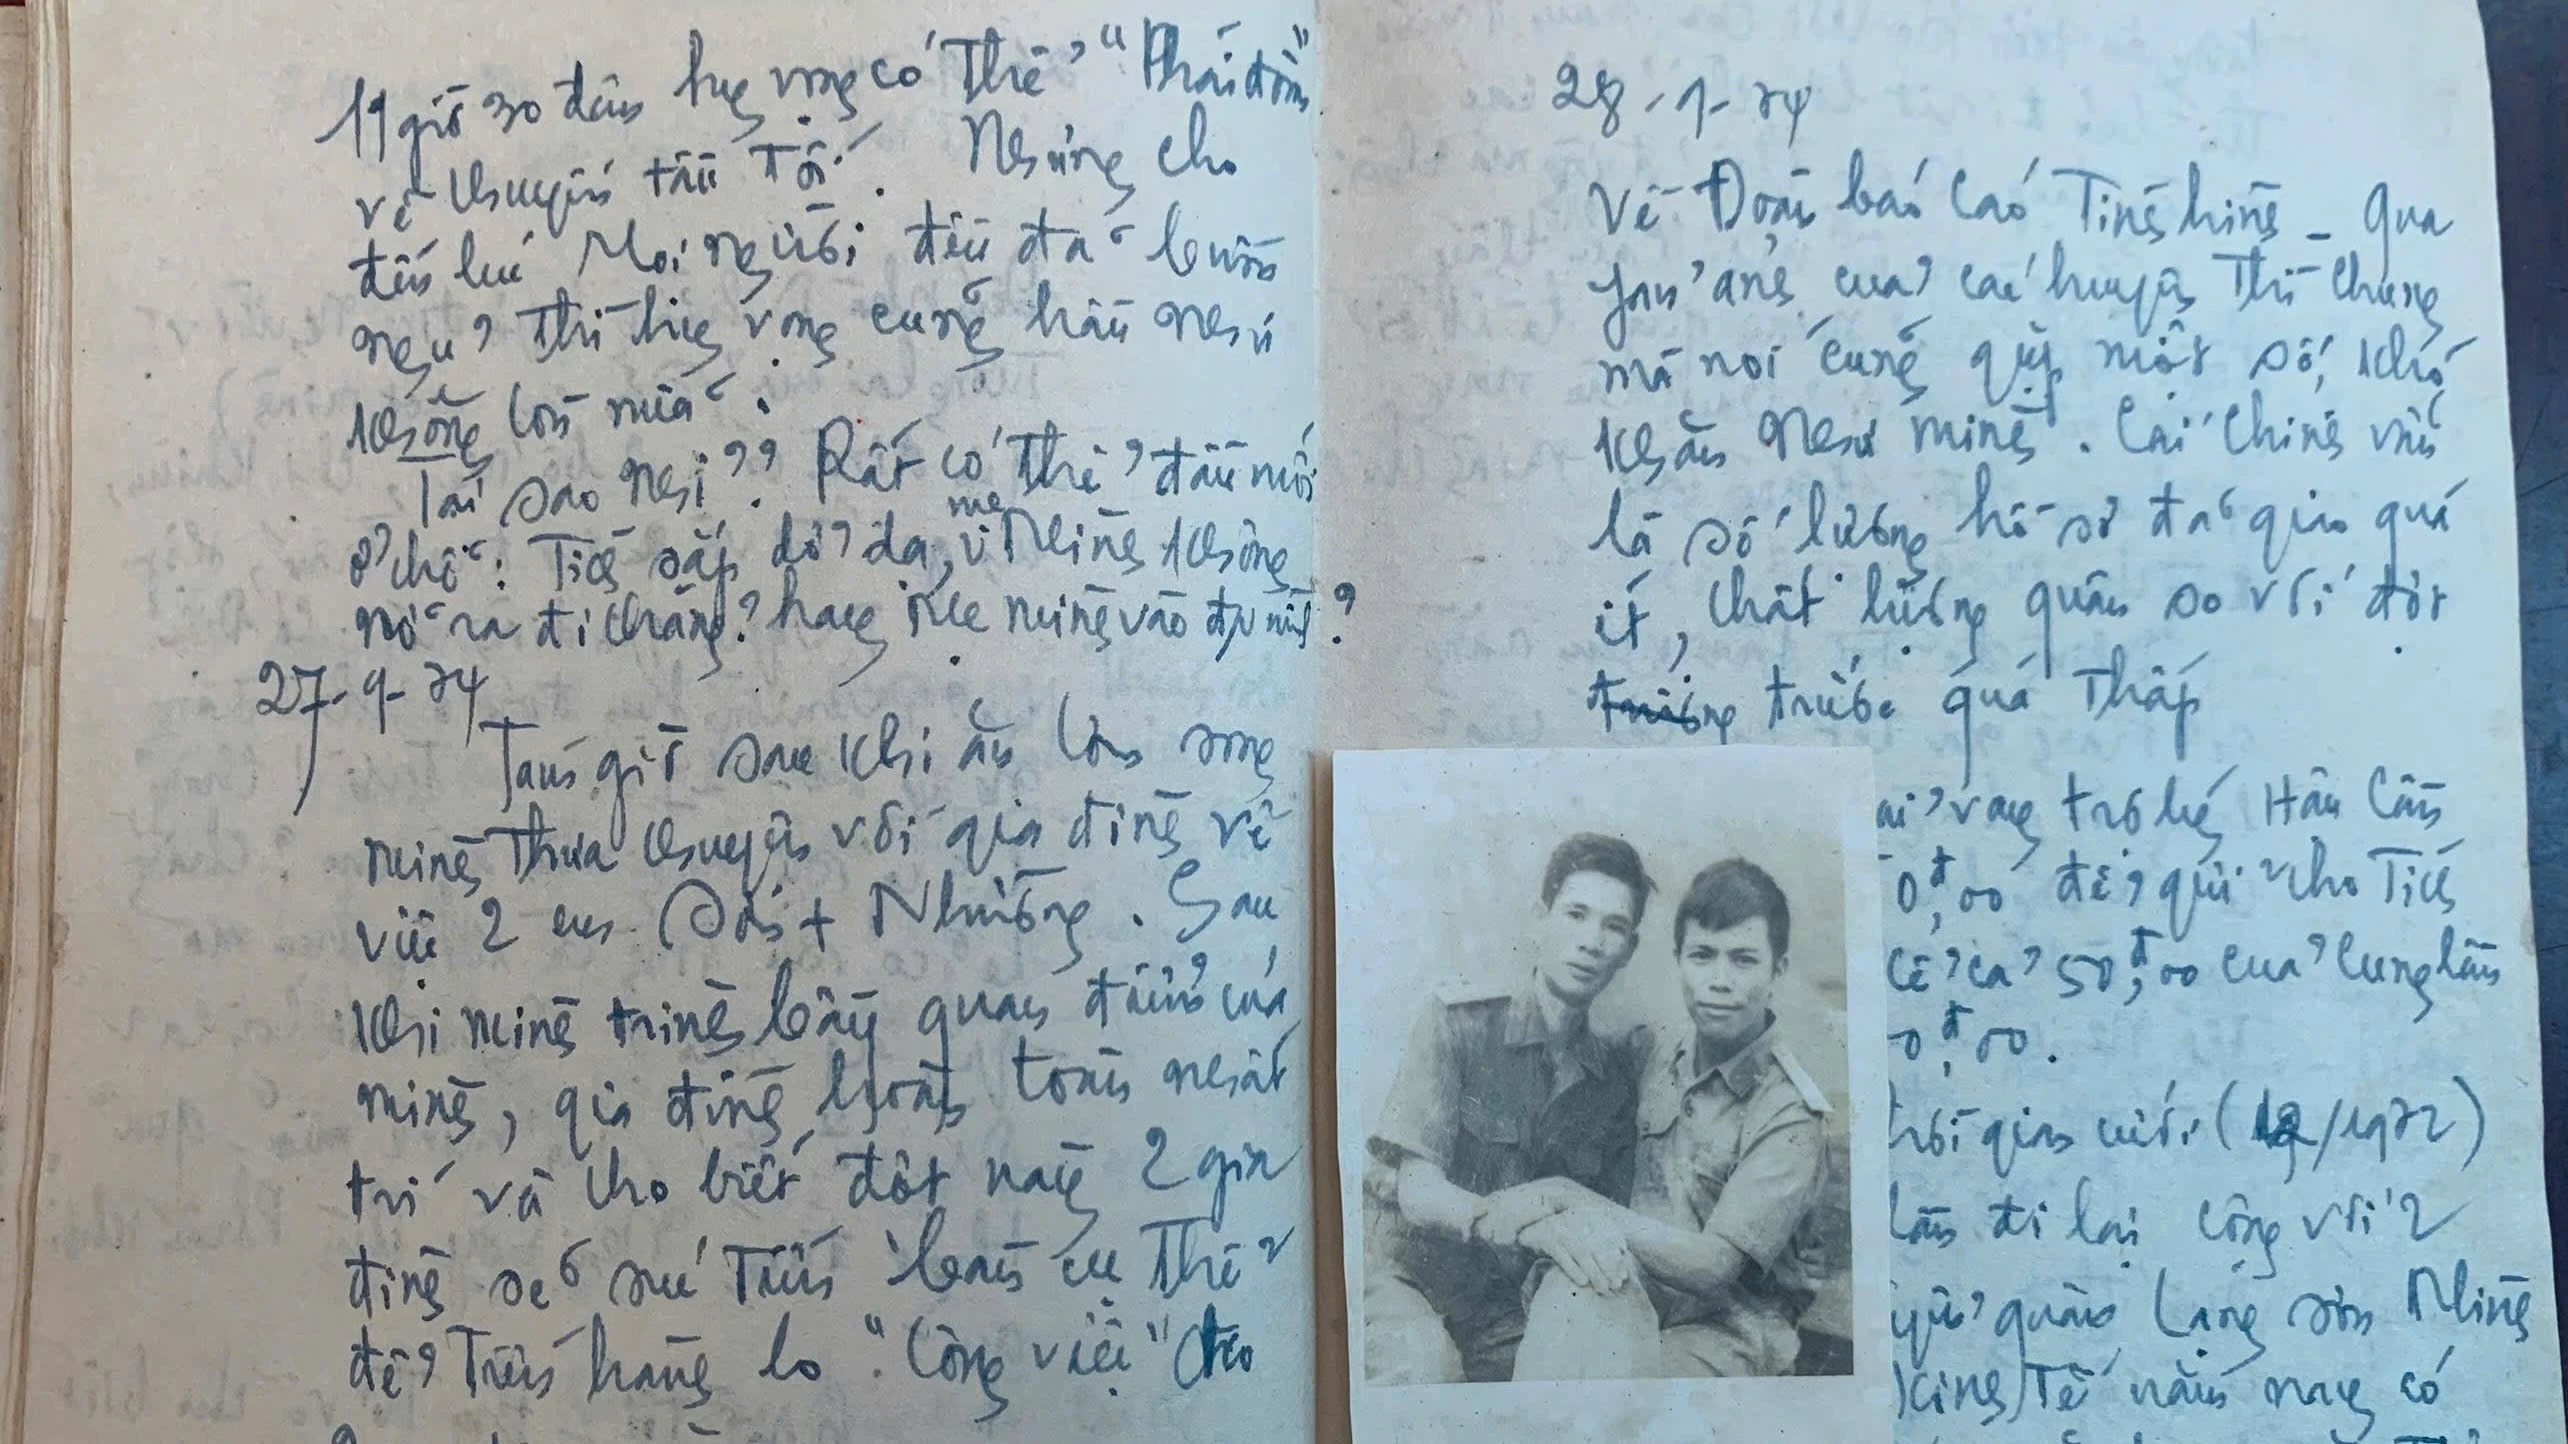 19 giờ 30 đêm hy vọng có thể "Phái đoàn"
về chuyến tầu tối. Nhưng cho
đến lúc Mọi người đều đã buồn
ngủ thì hy vọng cũng hầu như
không còn nữa.
Tại sao nhỉ?? Rất có thể đầu mối
ở chỗ: Tích sắp dở dạ, mẹ Minh không
nỡ ra đi chăng? hay
27-9-74
Tám giờ sau khi ăn cơm xong
mình thưa chuyện với gia đình về
việc 2 em Sơn + Nhường. Sau
khi mình trình bầy quan điểm của
mình, gia đình hoàn toàn nhất
trí và cho biết đợt này 2 gia
đình sẽ xúc tiến bàn cụ thể
để tiến hành lo "Công việc" cho
28-9-74
Về Đoàn báo cáo Tình hình - Qua
phản ánh của các huyện thì chung
mà nói cũng gặp một số khó
khăn như mình. Cái chính vẫn
là số lượng hồ sơ đã giao quá
ít, chất lượng quân so với đợt
trước quá thấp
vay trợ lý Hậu Cần
0,đ00 để gửi cho Tích
kể cả 50,đ00 của Cung lần
0,đ00.
thời gian cưới (12/1972)
lần đi lại cộng với 2
quân Lạng Sơn Mình
Kinh Tế năm nay có